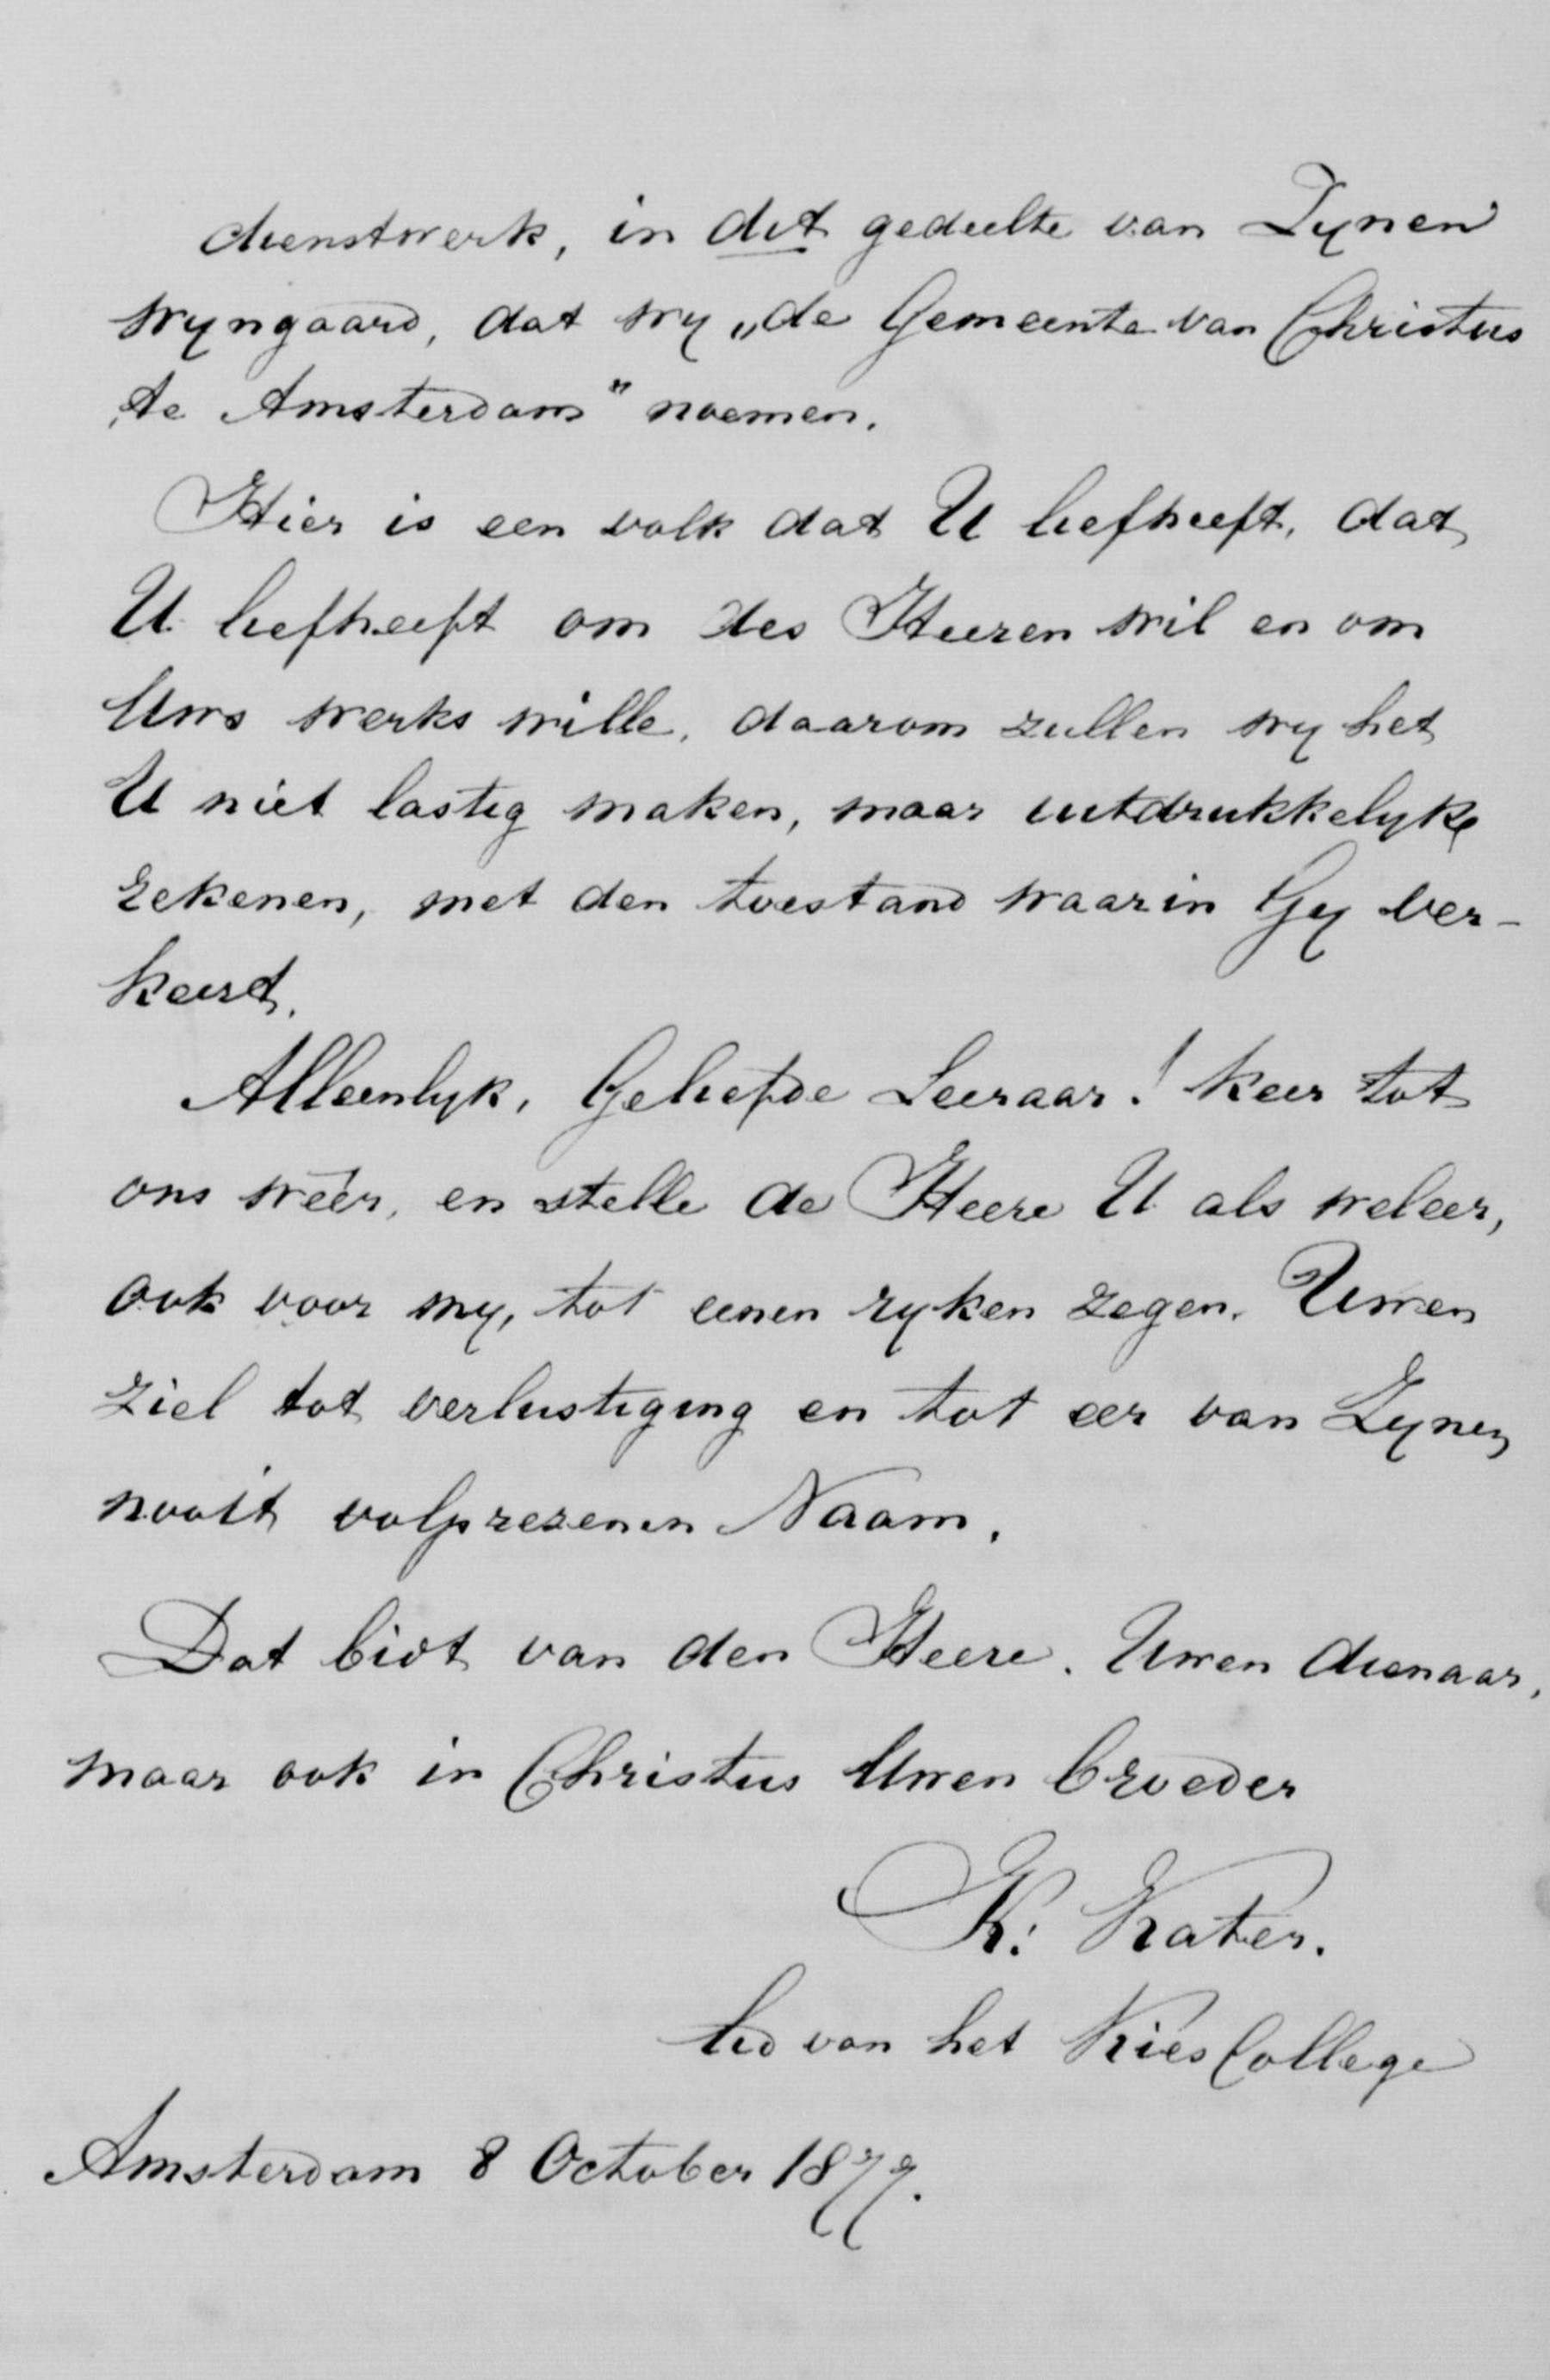 dienstwerk, in dit gedeelte van Zynen
wyngaard, dat wy „de Gemeente van Christus
te Amsterdam" noemen.
Hier is een volk dat U liefheeft, dat
U liefheeft om des Heeren wil en om
Uws werks wille, daarom zullen wy het
U niet lastig maken, maar uitdrukkelyke
rekenen, met den toestand waarin Gy ver-
keerd.
Alleenlyk, Geliefde Leeraar! keer tot
ons wéér, en stelle de Heere U als weleer,
ook voor my, tot eenen ryken zegen. Uwen
ziel tot verlustiging en tot eer van Zynen
nooit volprezenen Naam.
Dat bidt van den Heere. Uwen dienaar,
maar ook in Christus Uwen broeder
K. Kater.
lid van het Kies College
Amsterdam 8 October 1877.